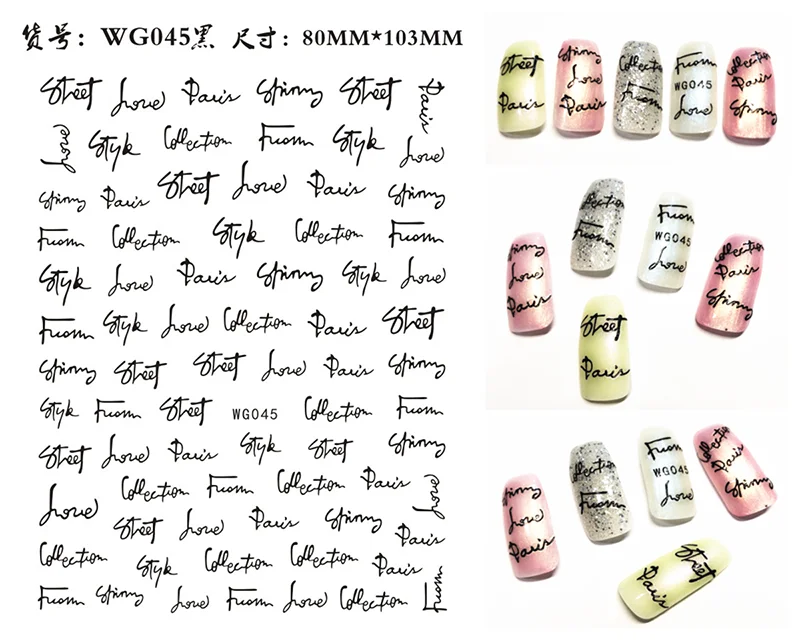 货号: WG045黑 尺寸: 80MM*103MM
Street Love Paris Spinny Street Paris
Love Style Collection From Style Love
Spinny Paris Street Love Paris Spinny
From Collection Style Collection From
Style Love Paris Spinny Style Love
From Style Love Collection Paris Street
Spinny Street Street Love Paris Spinny
Style From Street WG045 Collection From
Street Love Paris Style Street Spinny
Love Collection From Collection Paris Love
Street Love Paris Spinny Paris
Collection Style Collection Collection Paris
From Spinny Love From Love Collection From
Street
Paris
Spinny
Love
Paris
Collection
From
From
WG045
Love
Collection
Paris
Spinny
Spinny
Love
Paris
Collection
From
From
WG045
Love
Collection
Paris
Spinny
Street
Paris
Spinny
Love
Paris
Collection
From
From
WG045
Love
Collection
Paris
Spinny
Street
Paris